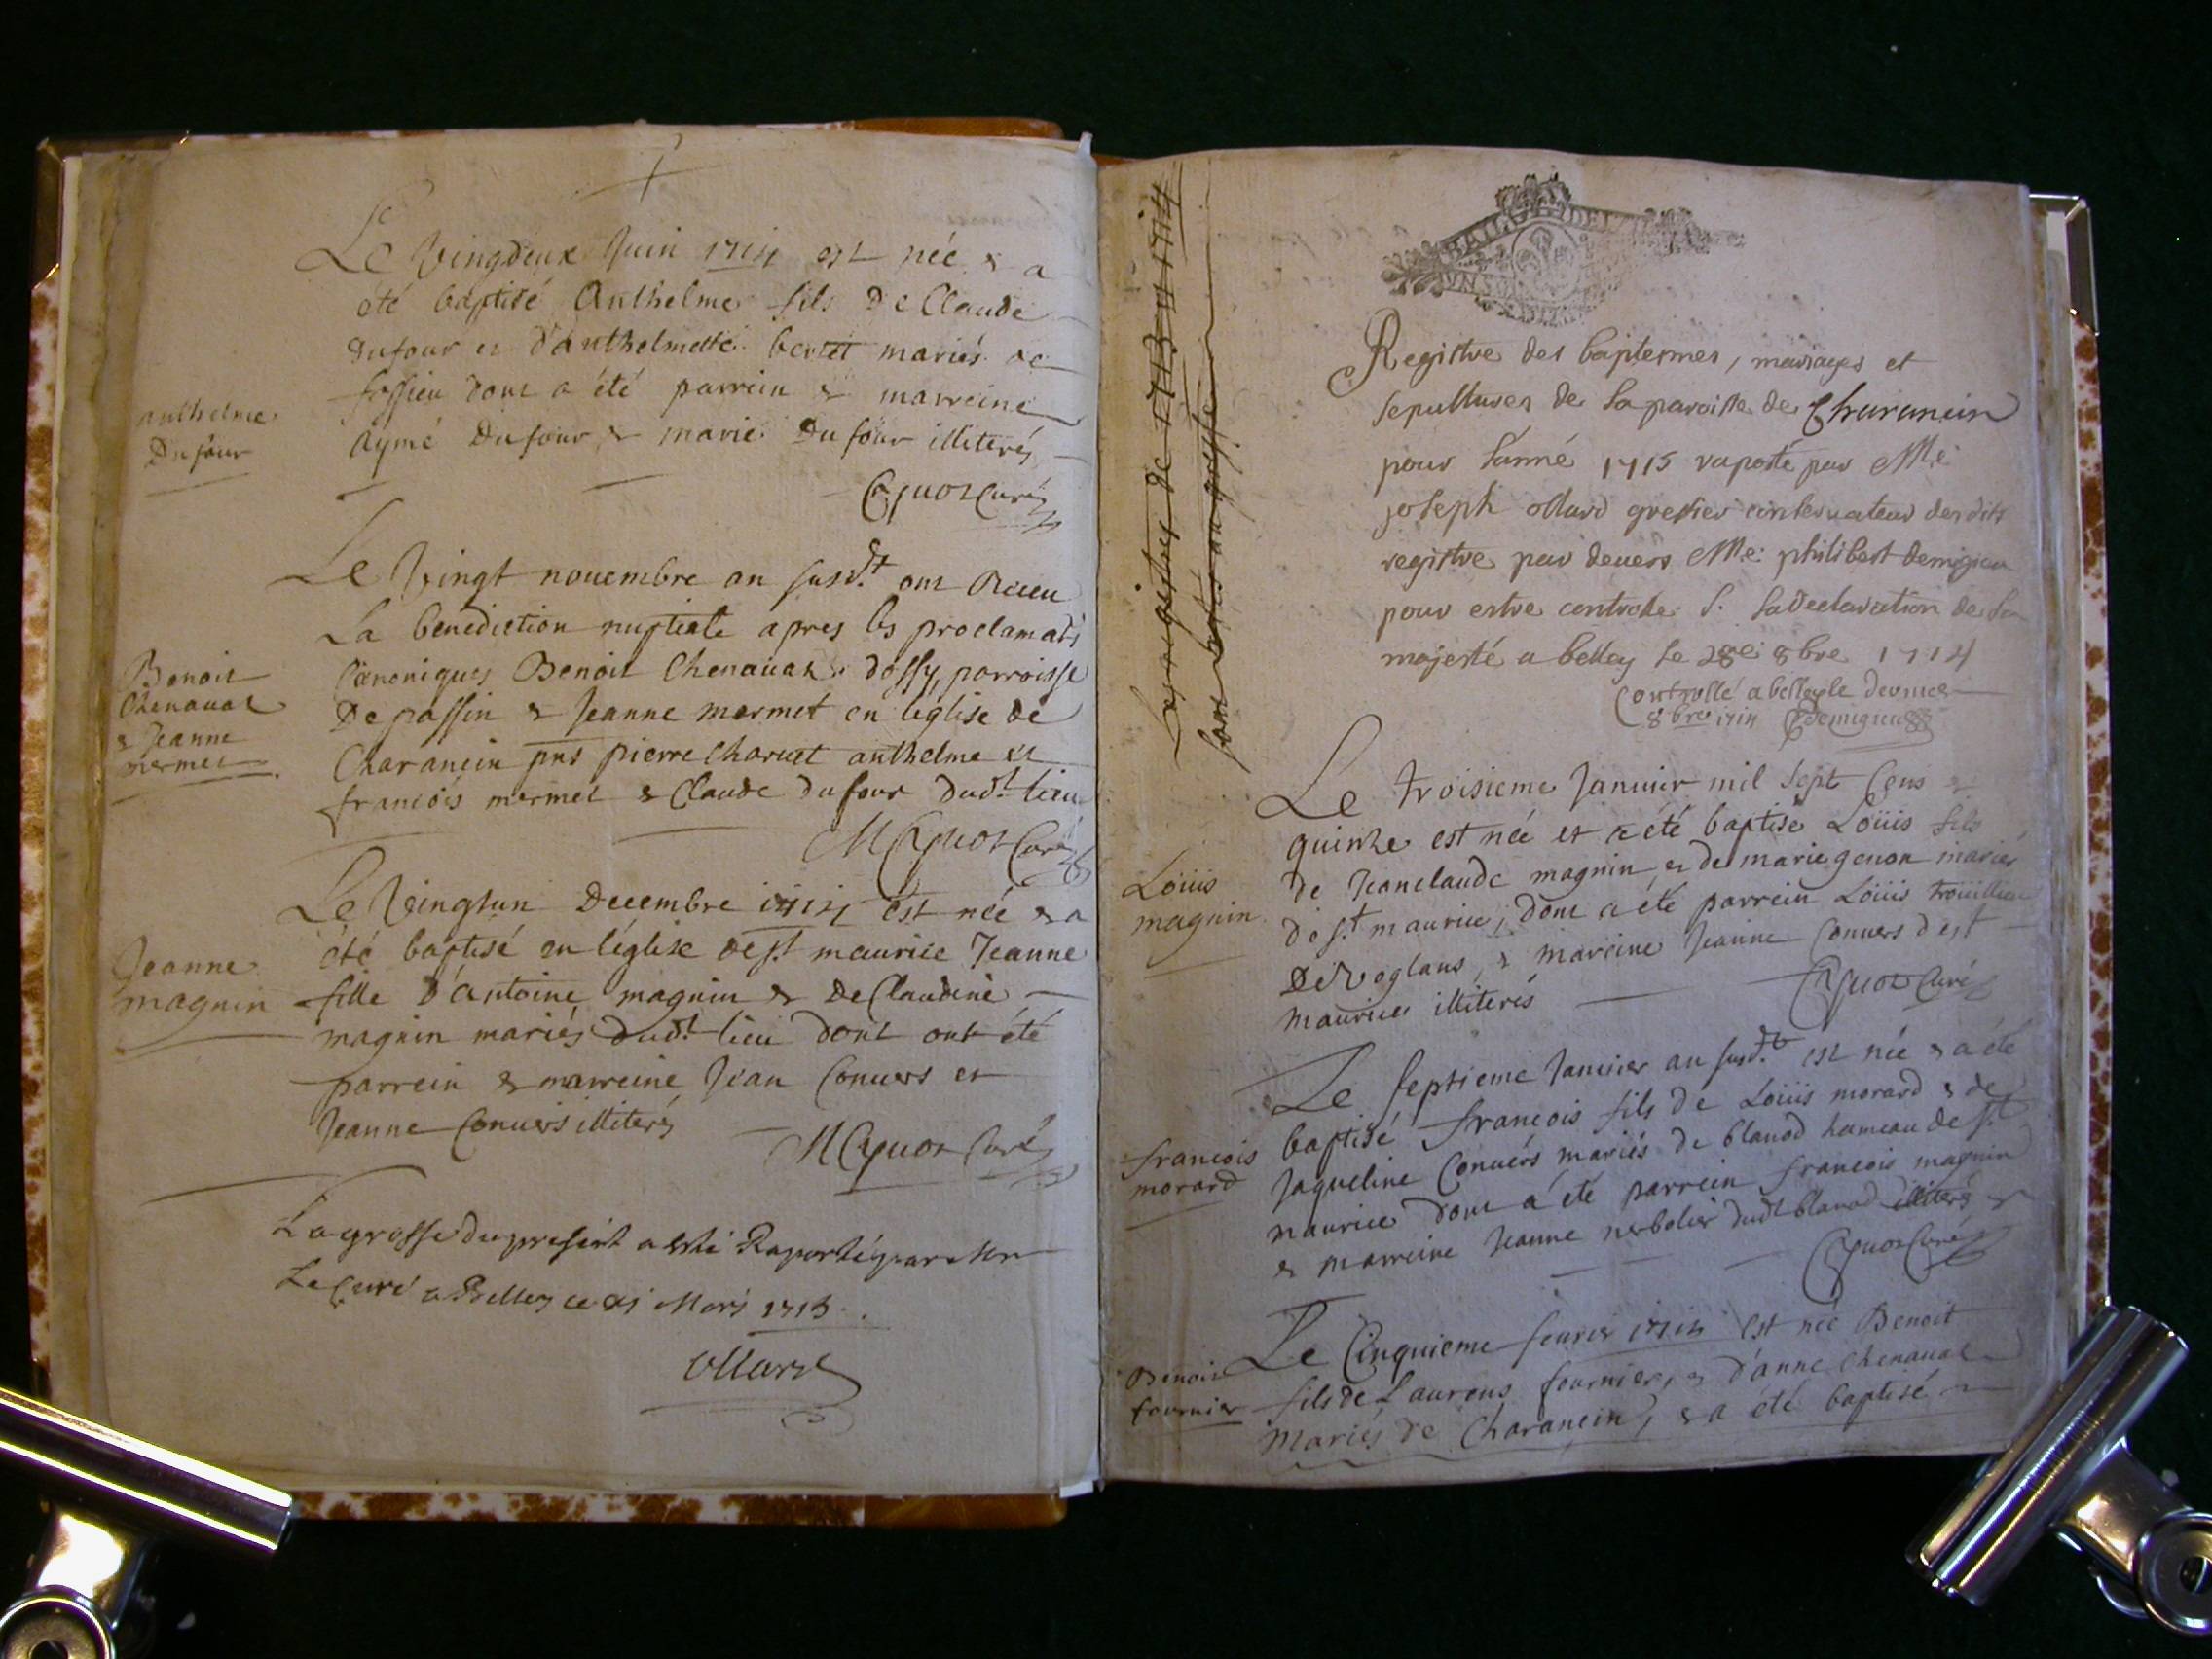 Le vingdeux Juin 1714 est née & a
été baptisé Anthelme fils de Claude
dufour et d'anthelmette bertet mariés de
fossieu dont a été parrein & marreine
aymé Dufour & marie Dufour illiterés
anthelme
Dufour
Curé
Le vingt nouembre an susd.t ont Receu
La benediction nuptiale apres les proclamat
Canoniques Benoit Chenauaz dossy parroisse
De passin & Jeanne mermet en leglise de
Charancin pns pierre Charuet anthelme et
francois mermet & Claude dufour dud.t lieu
Benoit
Chenauaz
& Jeanne
mermet
Curé
Le vingtun Decembre 1714 est née & a
été baptisé en l'église de st maurice Jeanne
fille d'antoine magnin & de Claudine
magnin mariés dud.t lieu dont ont été
parrein & marreine Jean Conuers et
Jeanne Conuers illiterés
Jeanne
magnin
Curé
La grosse du present a esté Raportée par Mr
Le Curé a Belley ce 21 Mars 1715
ollard
Les registres de 1713 et 1714
sont
BAIL DE
VN SOL
Registre des baptesmes, mariages et
sepultures de la paroisse de Charancin
pour l'anné 1715 raporté par Me
joseph ollard greffier conseruateur desdits
registre par deuers Me philibert demigieu
pour estre controlle s. la declaration de sa
majesté a belley le 28e 8bre 1714
Controllé a belley le
8bre 1714 Demigieu
Le troisieme Januier mil sept Cens
quinze est née et a été baptisé Loüis fils
de Jeanclaude magnin et de marie genon mariés
de s.t maurice, dont a été parrein Loüis
De Voglans, & mareine Jeanne Conuers de st
maurice illiterés
Loüis
magnin
Curé
Le septieme Januier an susd.t est née & a été
baptisé francois fils de Loüis morard & de
Jaqueline Conuers mariés de blanod hameau de st
maurice dont a été parrein francois magnin
& marreine Jeanne nerbolier dudt blanod illiterés
francois
morard
Curé
Le Cinquieme feurier 1714 est née Benoit
fils de Laurens fournier, & d'anne Chenauaz
Mariés de Charancin, & a été baptisé
Benoit
fournier